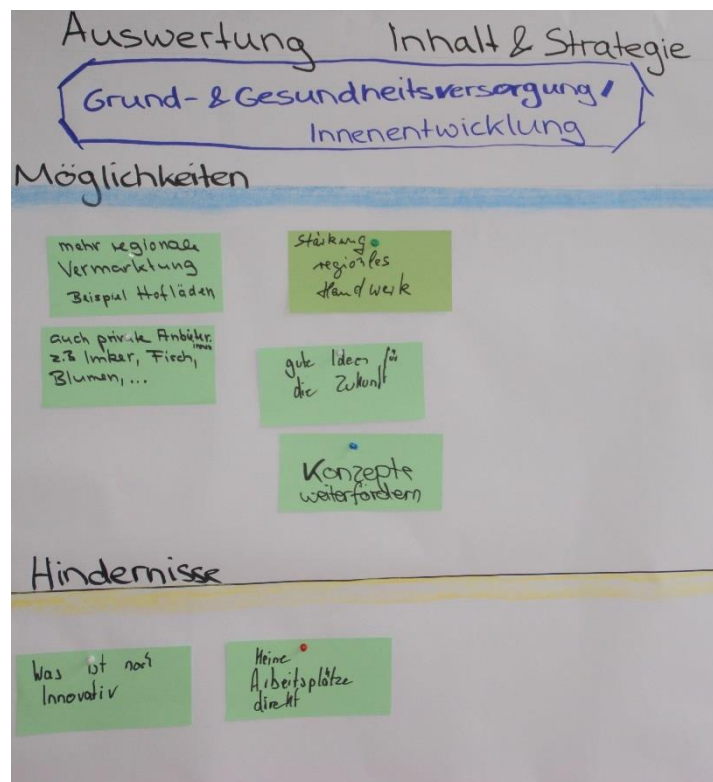 Auswertung Inhalt & Strategie
Grund- & Gesundheitsversorgung /
Innenentwicklung
Möglichkeiten
mehr regionale
Vermarktung
Beispiel Hofläden
auch private Anbieter
innen
z.B Imker, Fisch,
Blumen, ...
Stärkung
regionales
Handwerk
gute Ideen für
die Zukunft
Konzepte
weiterfördern
Hindernisse
Was ist noch
Innovativ
Keine
Arbeitsplätze
direkt